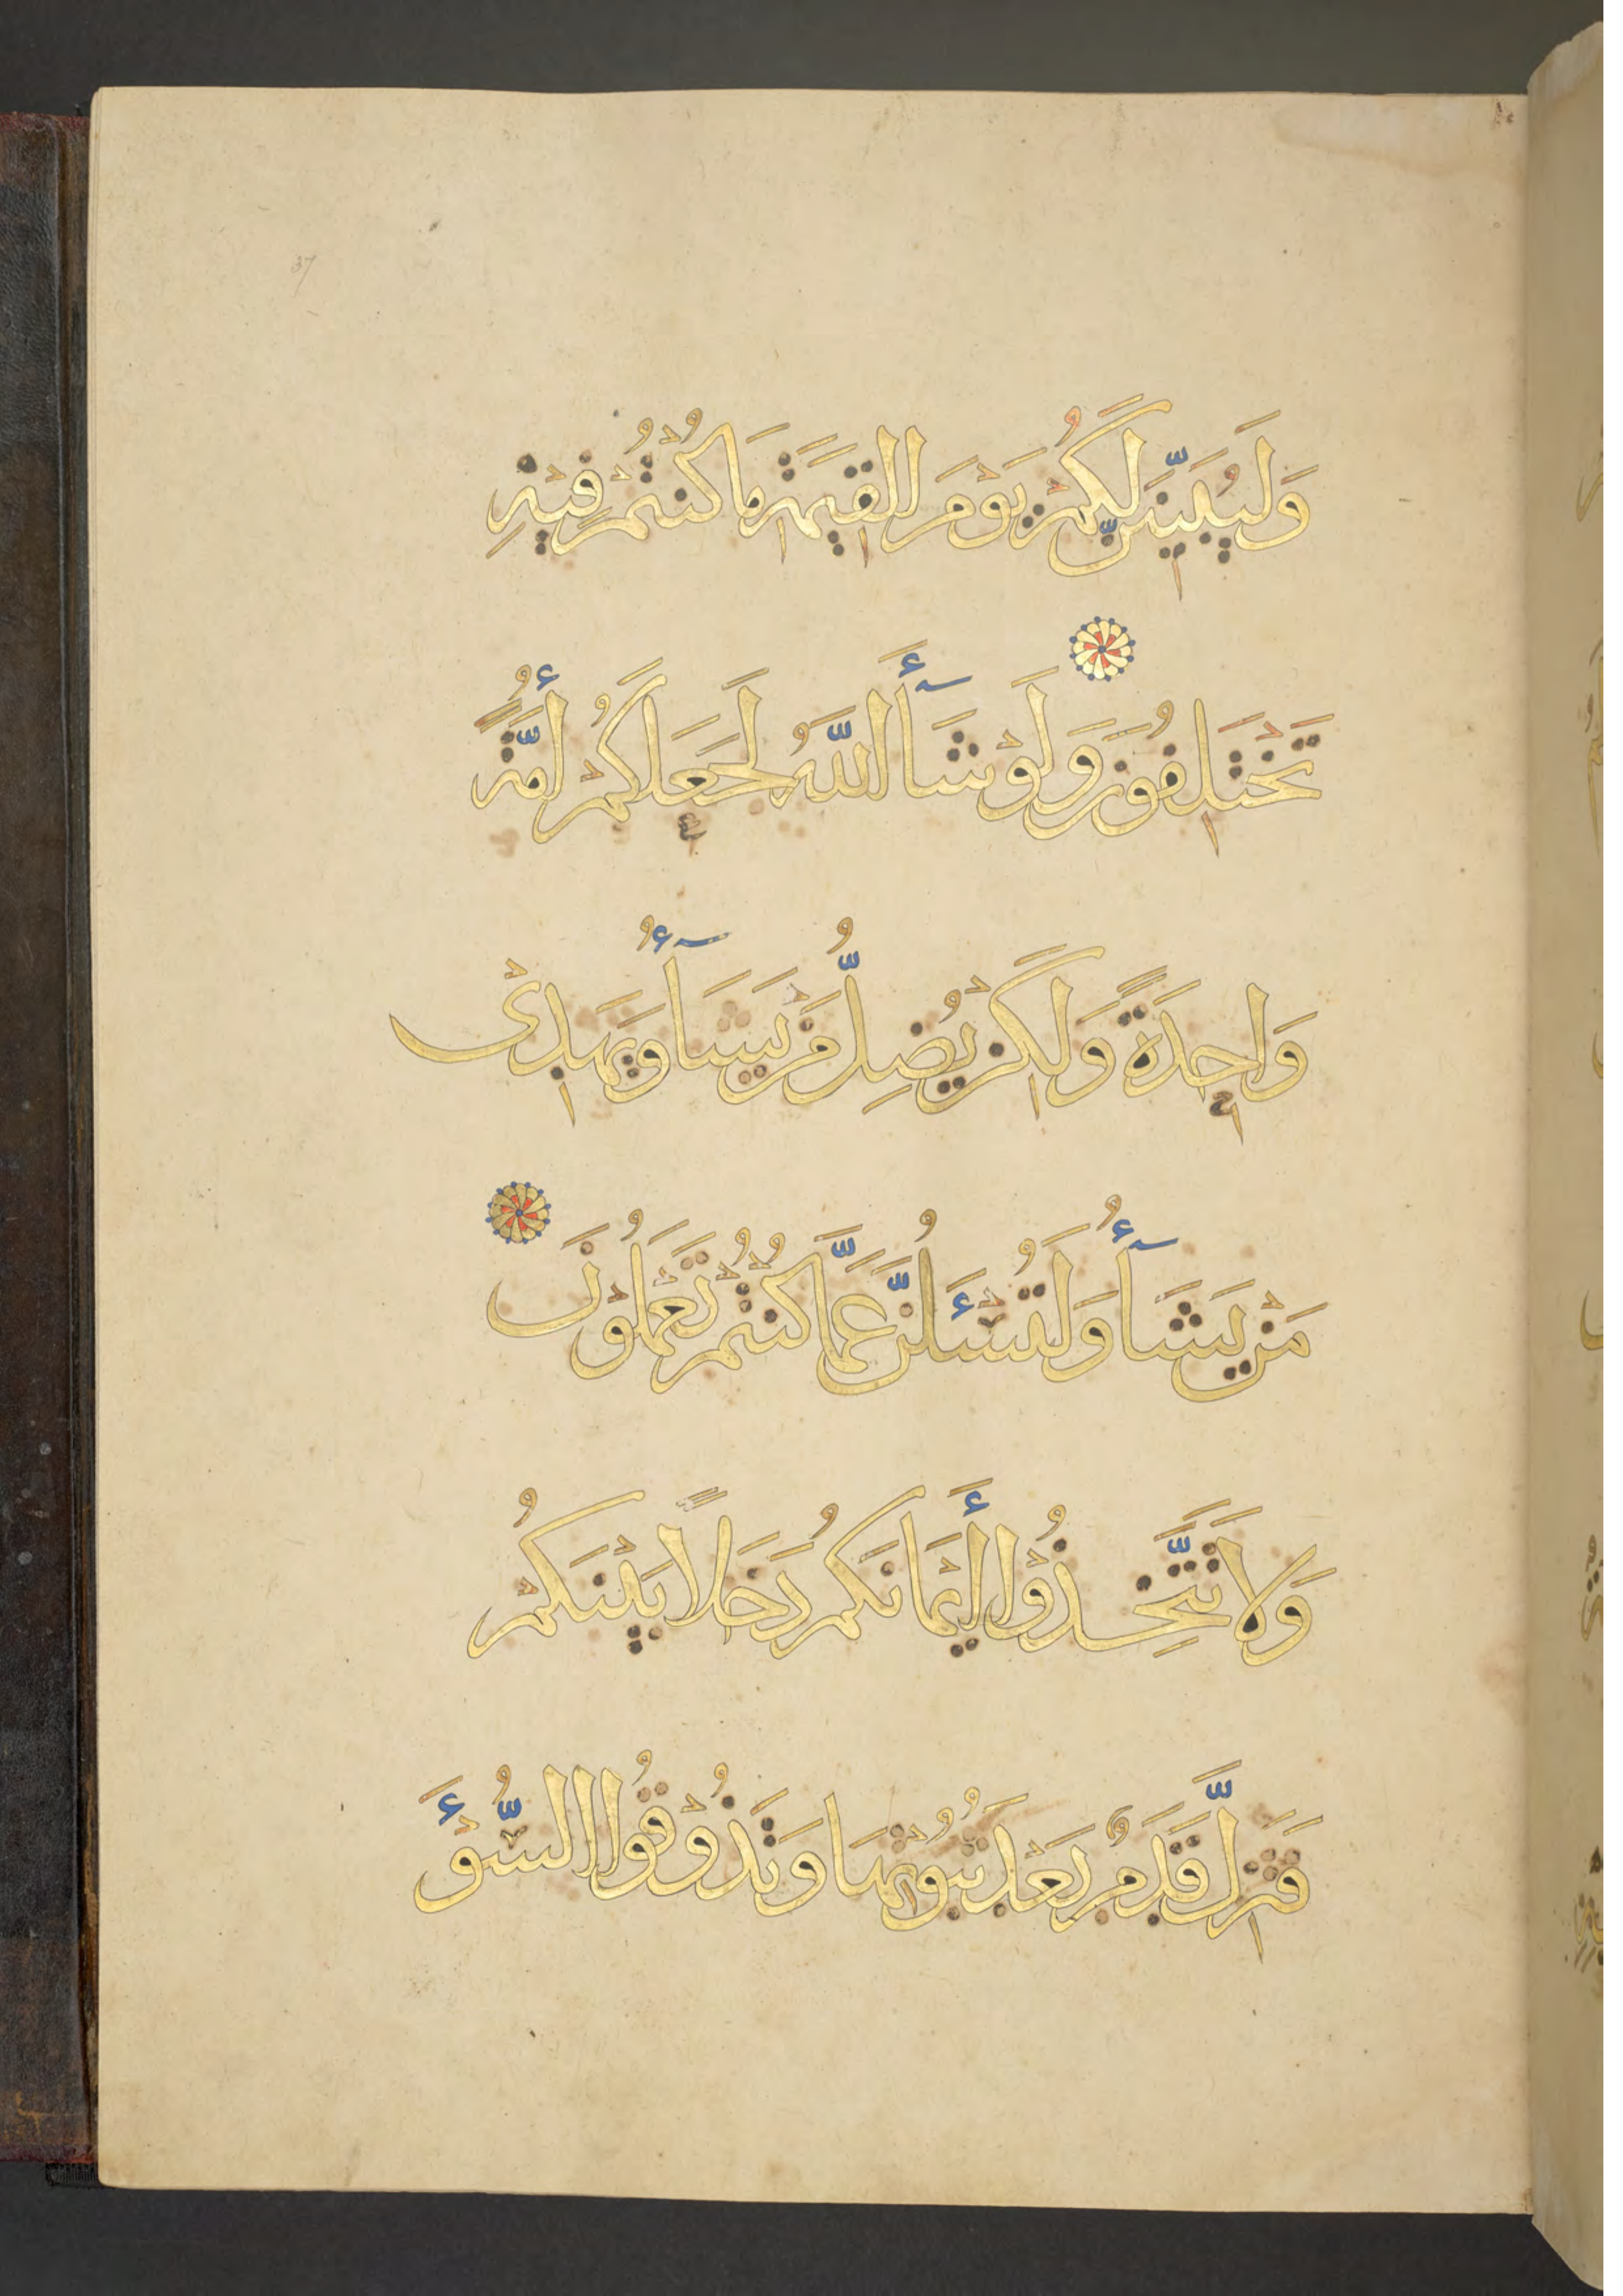 37
وَلَيُبَيِّنَنَّ لَكُمْ يَوْمَ الْقِيَمَةِ مَا كُنْتُمْ فِيْهِ
تَخْتَلِفُونَ وَلَوْ شَآءَ اللَّهُ لَجَعَلَكُمْ أُمَّةً
وَاحِدَةً وَلَكِنْ يُضِلُّ مَنْ يَشَآءُ وَيَهْدِىْ
مَنْ يَشَآءُ وَلَتُسْئَلُنَّ عَمَّا كُنْتُمْ تَعْمَلُوْنَ
وَلَا تَتَّخِذُوْا أَيْمَانَكُمْ دَخَلًا بَيْنَكُمْ
فَتَزِلَّ قَدَمٌ بَعْدَ ثُبُوْتِهَا وَتَذُوْقُوا السُّوْءَ